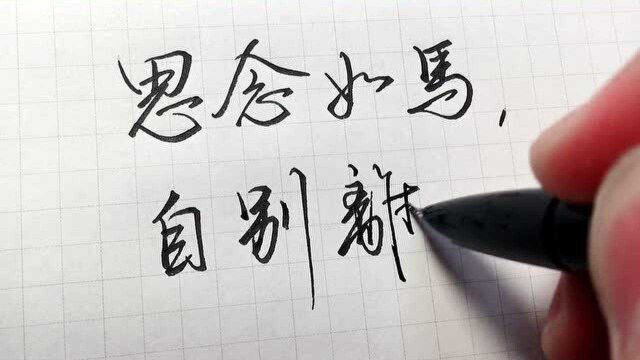 思念如馬，
自别離